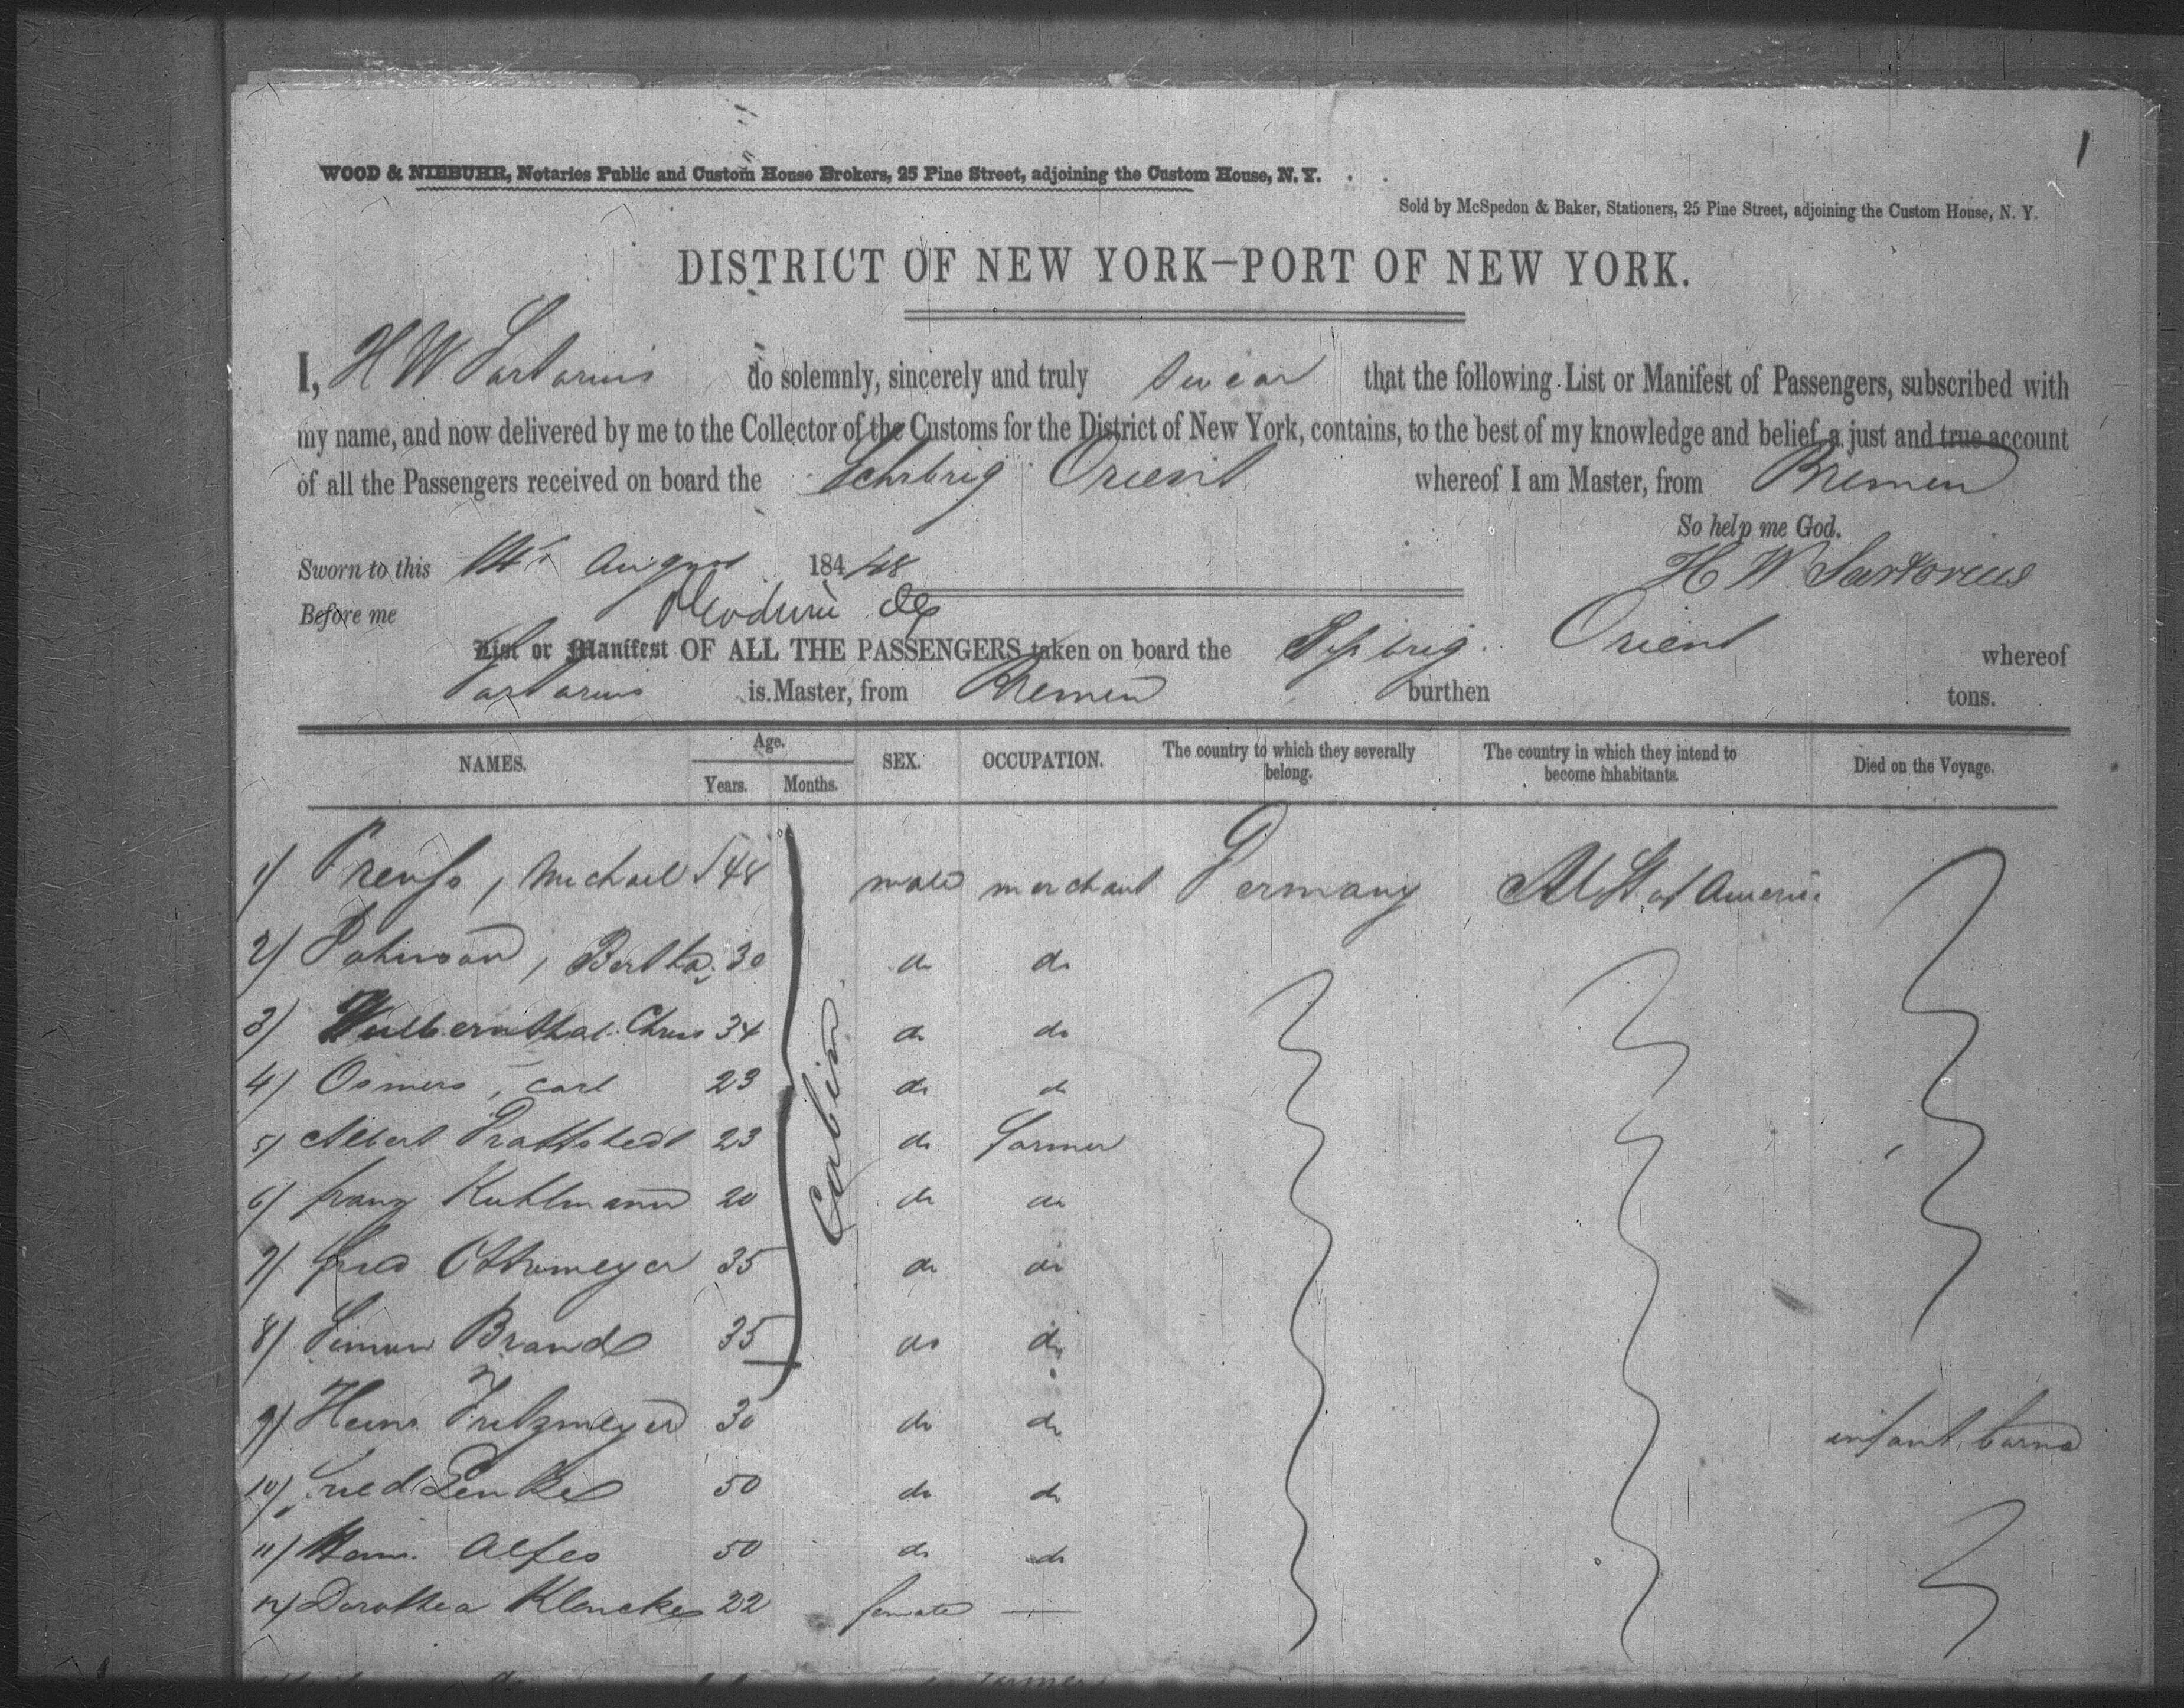 1
WOOD & NIEBUHR, Notaries Public and Custom House Brokers, 25 Pine Street, adjoining the Custom House, N. Y.
Sold by McSpedon & Baker, Stationers, 25 Pine Street, adjoining the Custom House, N. Y.
DISTRICT OF NEW YORK—PORT OF NEW YORK.
I, H W Sartorius do solemnly, sincerely and truly swear that the following List or Manifest of Passengers, subscribed with
my name, and now delivered by me to the Collector of the Customs for the District of New York, contains, to the best of my knowledge and belief, a just and true account
of all the Passengers received on board the Schrbrig Orient whereof I am Master, from Bremen
So help me God.
Sworn to this 14th August 184/48 H W Sartorius
Before me
List or Manifest OF ALL THE PASSENGERS taken on board the brig Orient whereof
Sartorius is Master, from Bremen burthen tons.
NAMES. Age. Years. Months. SEX. OCCUPATION. The country to which they severally belong. The country in which they intend to become inhabitants. Died on the Voyage.
1) Michael 48 male merchant Germany USt of America
2) Bertha 30 do do
3) Chris 34 do do
4) Osmers, Carl 23 do do
5) Albert 23 do farmer
6) franz Kuhlmann 20 do do
Cabin
7) fred Ottomeyer 35 do do
8) Simon Brand 35 do do
9) Heinr. Fritzmeyer 30 do do infant, born
10) fried Lenke 50 do do
11) Alfes 50 do do
12) Dorothea Klencke 22 female —